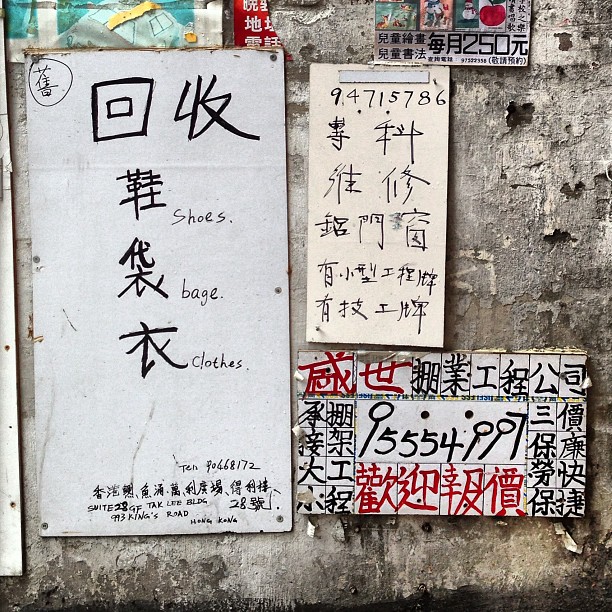 舊
回收
鞋
Shoes.
袋
bage.
衣
Clothes.
Tel: 90668172
香港鰂魚涌萬利廣場、得利樓
28號
SUITE 28 GF TAK LEE BLDG
993 KING'S ROAD
HONG KONG
電話
兒童繪畫
兒童書法
每月250元
(敬請預約)
94715786
專科
維修
鋁門窗
有小型工程牌
有技工牌
盛世棚業工程公司
承接大小
棚架工程
95554997
歡迎報價
三保勞保
價廉快捷